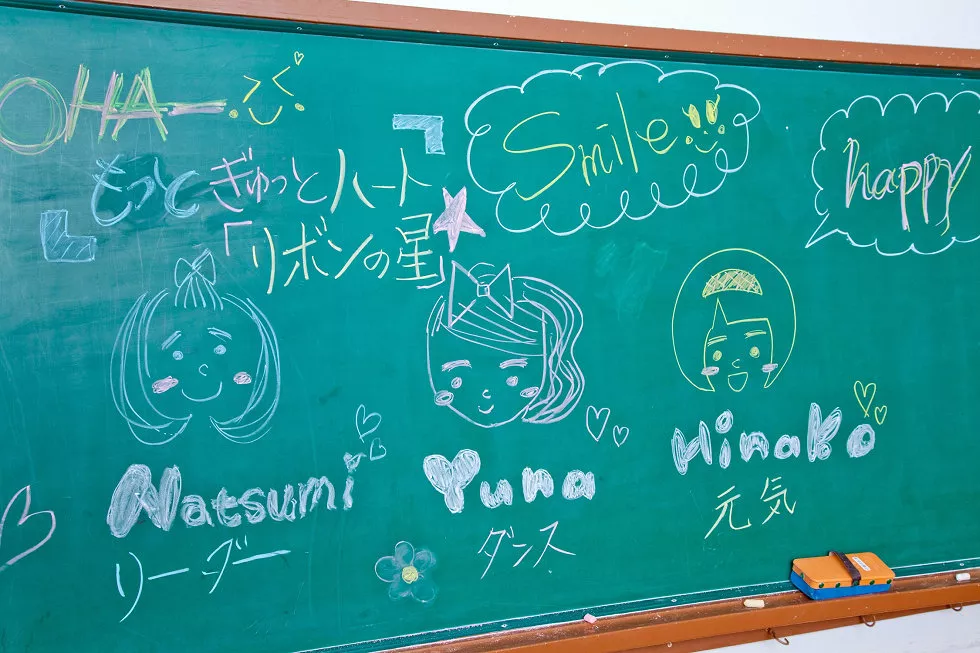 OHAー
もっとぎゅっとハート
「リボンの星」
Smile
happy
Natsumi
リーダー
Yuna
ダンス
Hinako
元気